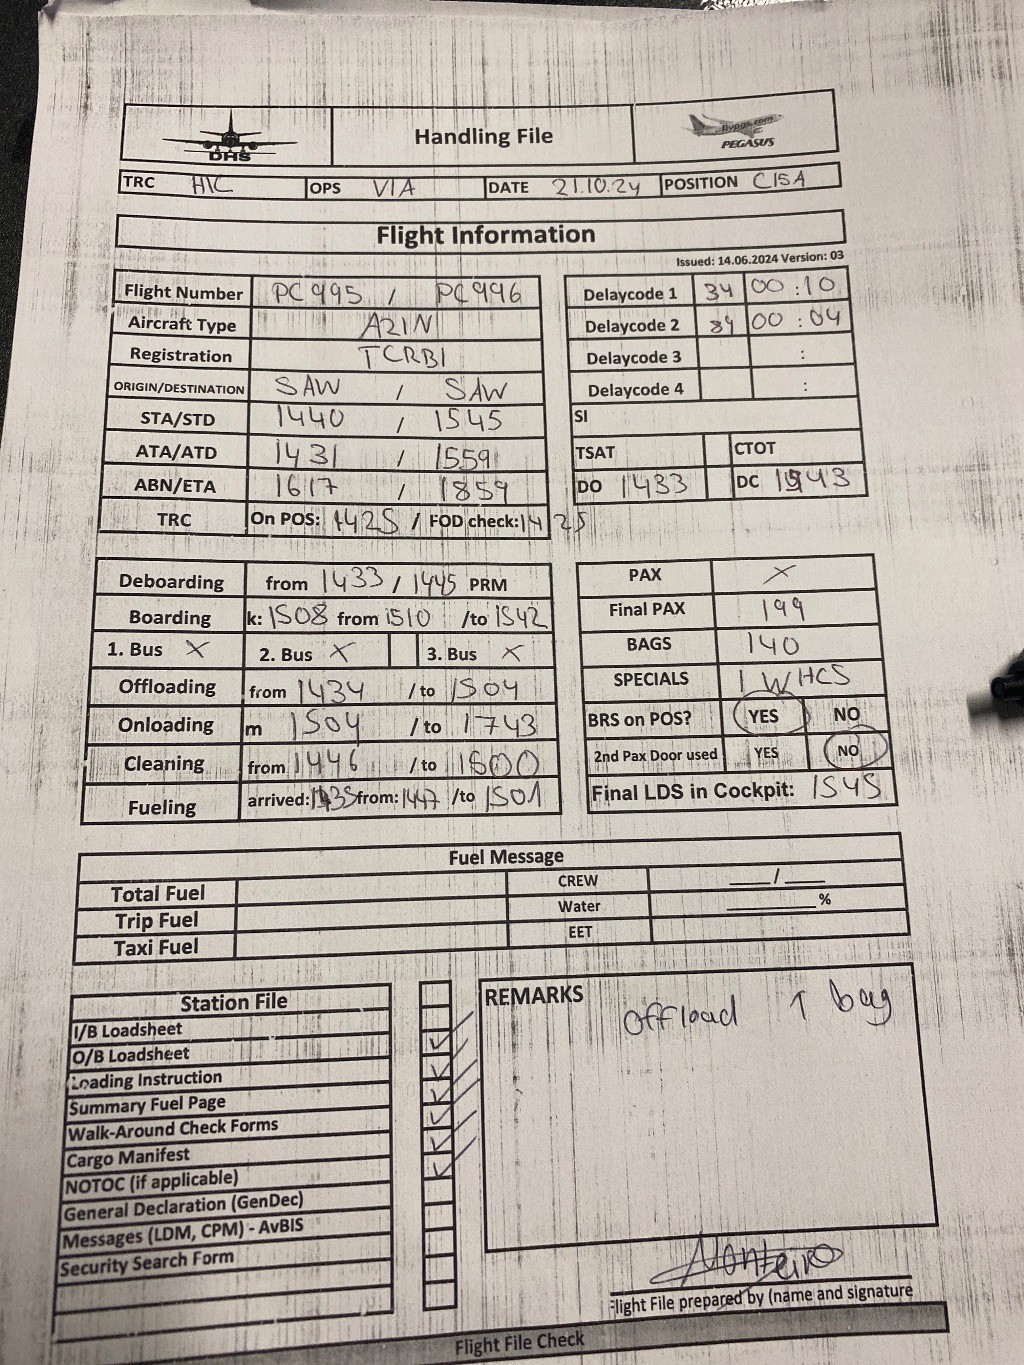 DHS
Handling File
flypgs.com
PEGASUS
TRC HIC OPS VIA DATE 21.10.24 POSITION C15A
Flight Information
Issued: 14.06.2024 Version: 03
Flight Number PC995 / PC996
Aircraft Type A21N
Registration TCRBI
ORIGIN/DESTINATION SAW / SAW
STA/STD 1440 / 1545
ATA/ATD 1431 / 1559
ABN/ETA 1617 / 1859
TRC On POS: 1425 / FOD check: 1425
Delaycode 1 34 00:10
Delaycode 2 89 00:04
Delaycode 3 :
Delaycode 4 :
SI
TSAT CTOT
DO 1433 DC 1543
Deboarding from 1433 / 1445 PRM
Boarding k: 1508 from 1510 /to 1542
1. Bus X 2. Bus X 3. Bus X
Offloading from 1434 /to 1504
Onloading m 1504 /to 1743
Cleaning from 1446 /to 1500
Fueling arrived: 1435 from: 1447 /to 1501
PAX X
Final PAX 199
BAGS 140
SPECIALS 1 WHCS
BRS on POS? YES NO
2nd Pax Door used YES NO
Final LDS in Cockpit: 1545
Fuel Message
Total Fuel CREW ___/___
Trip Fuel Water ________%
Taxi Fuel EET
Station File
I/B Loadsheet
O/B Loadsheet
Loading Instruction
Summary Fuel Page
Walk-Around Check Forms
Cargo Manifest
NOTOC (if applicable)
General Declaration (GenDec)
Messages (LDM, CPM) - AvBIS
Security Search Form
REMARKS
Offload 1 bag
Monteiro
Flight File prepared by (name and signature
Flight File Check